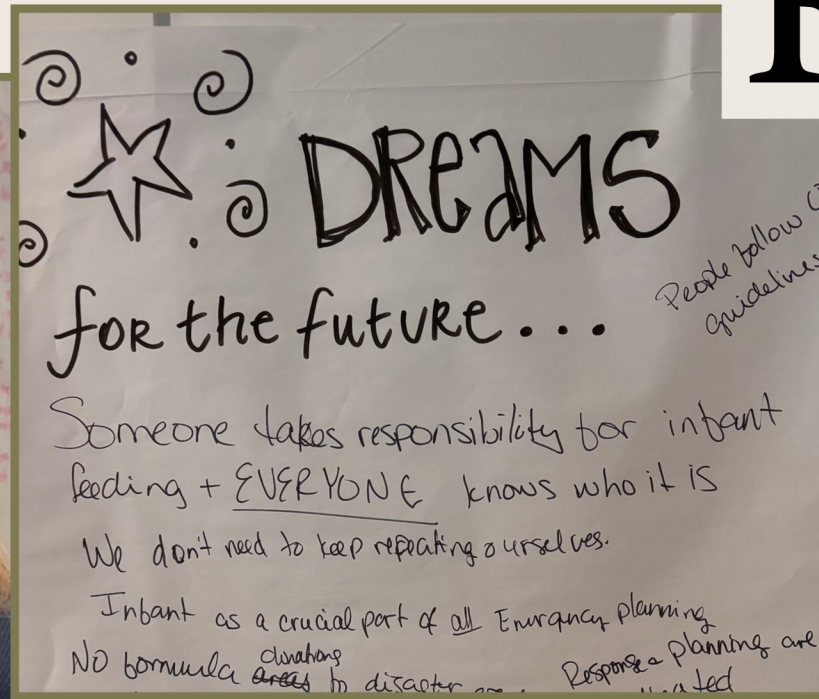 DREAMS
for the future...
People follow
guidelines
Someone takes responsibility for infant
feeding + EVERYONE knows who it is
We don't need to keep repeating ourselves.
Infant as a crucial part of all Emergancy planning
No formula donations to disaster
Response planning are